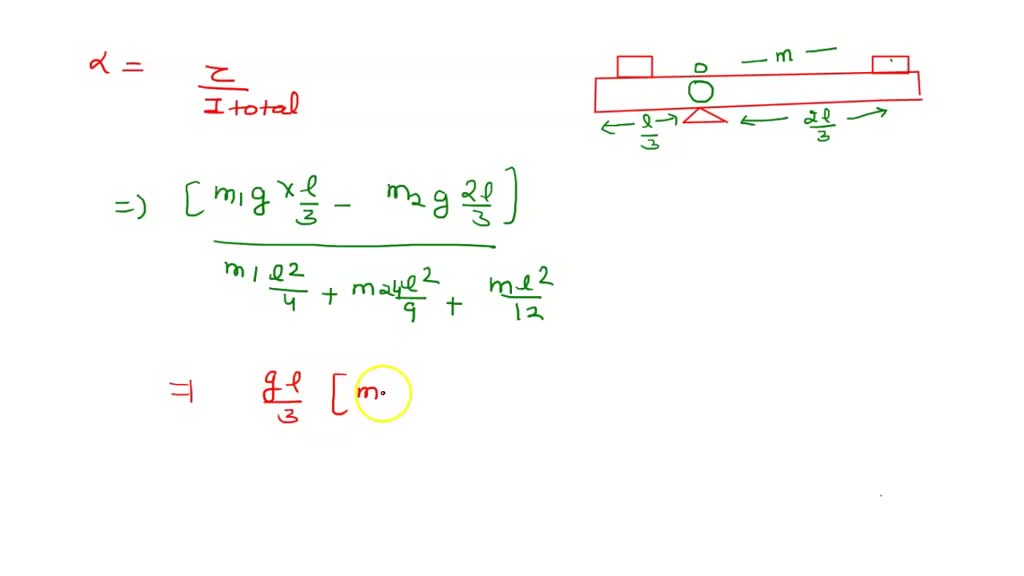 α = τ / I total
— m —
o
l/3 2l/3
=) [ m1g × l/3 − m2 g 2l/3 ]
m1 l2/4 + m2 4l2/9 + ml2/12
=) gl/3 [ m